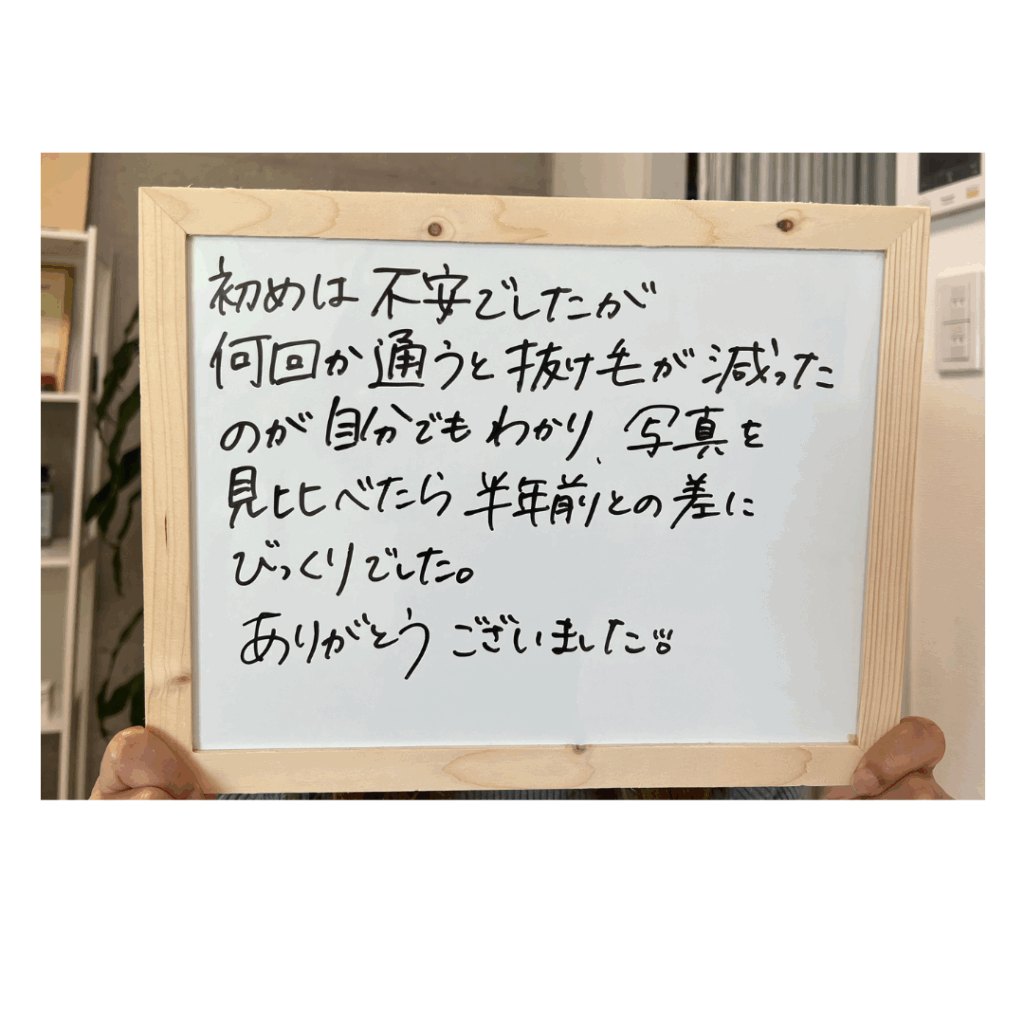 初めは不安でしたが
何回か通うと抜け毛が減った
のが自分でもわかり、写真を
見比べたら半年前との差に
びっくりでした。
ありがとうございました